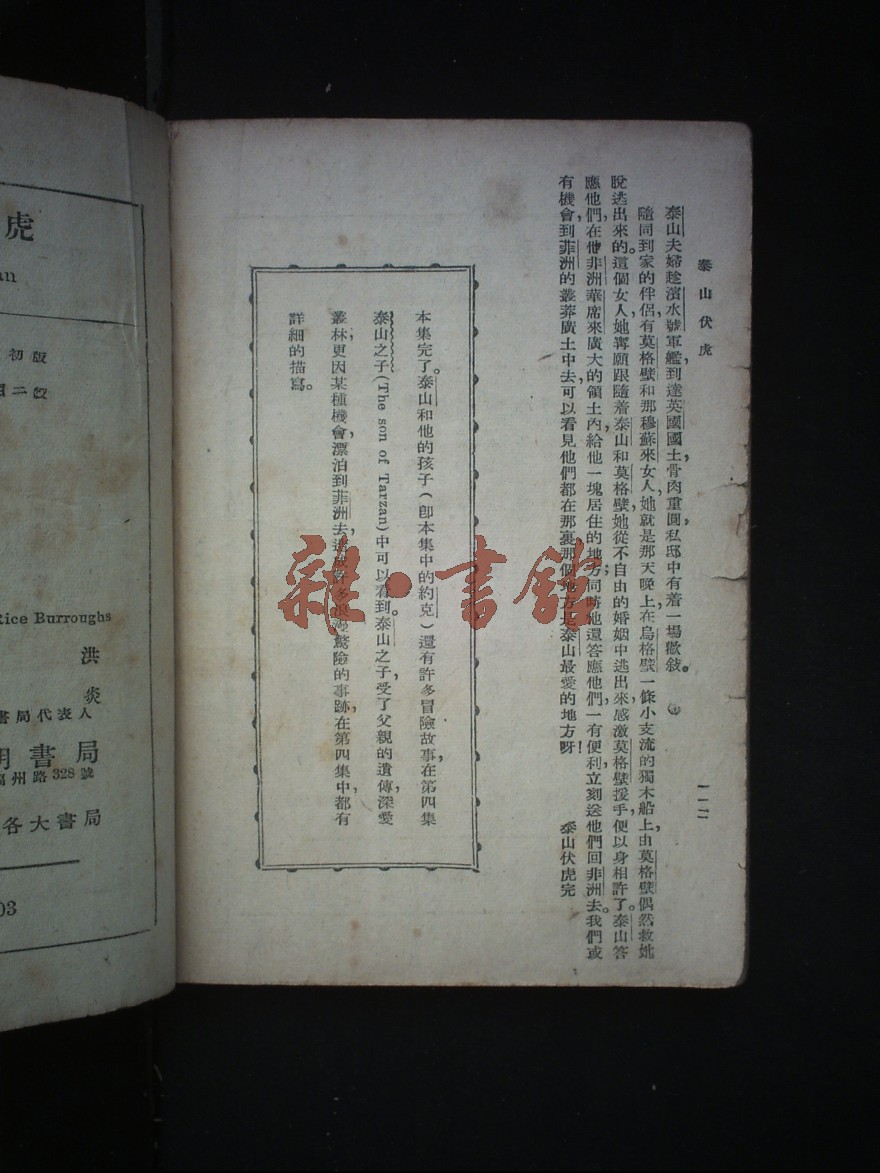 泰山伏虎
一一二
泰山夫婦趁濱水號軍艦，到達英國國土，骨肉重圓，私邸中有着一場歡敍。
隨同到家的伴侶，有莫格壁和那穆蘇來女人，她就是那天晚上，在烏格壁一條小支流的獨木船上，由莫格壁偶然救她
脫逃出來的。這個女人，她寗願跟隨着泰山和莫格壁，她從不自由的婚姻中逃出來，感激莫格壁援手，便以身相許了。泰山答
應他們，在他非洲華席來廣大的領土內，給他一塊居住的地方；同時他還答應他們，一有便利，立刻送他們回非洲去。我們或
有機會，到菲洲的叢莽廣土中去，可以看見他們都在那裏，那個地方是泰山最愛的地方呀！
泰山伏虎完
本集完了。泰山和他的孩子(卽本集中的約克)還有許多冒險故事，在第四集
泰山之子(The son of Tarzan)中可以看到。泰山之子，受了父親的遺傳，深愛
叢林，更因某種機會，漂泊到菲洲去，造成許多浪漫驚險的事跡，在第四集中，都有
詳細的描寫。
虎
an
初版
Rice Burroughs
洪
炎
書局代表人
明書局
福州路328號
各大書局
03
雜·書館